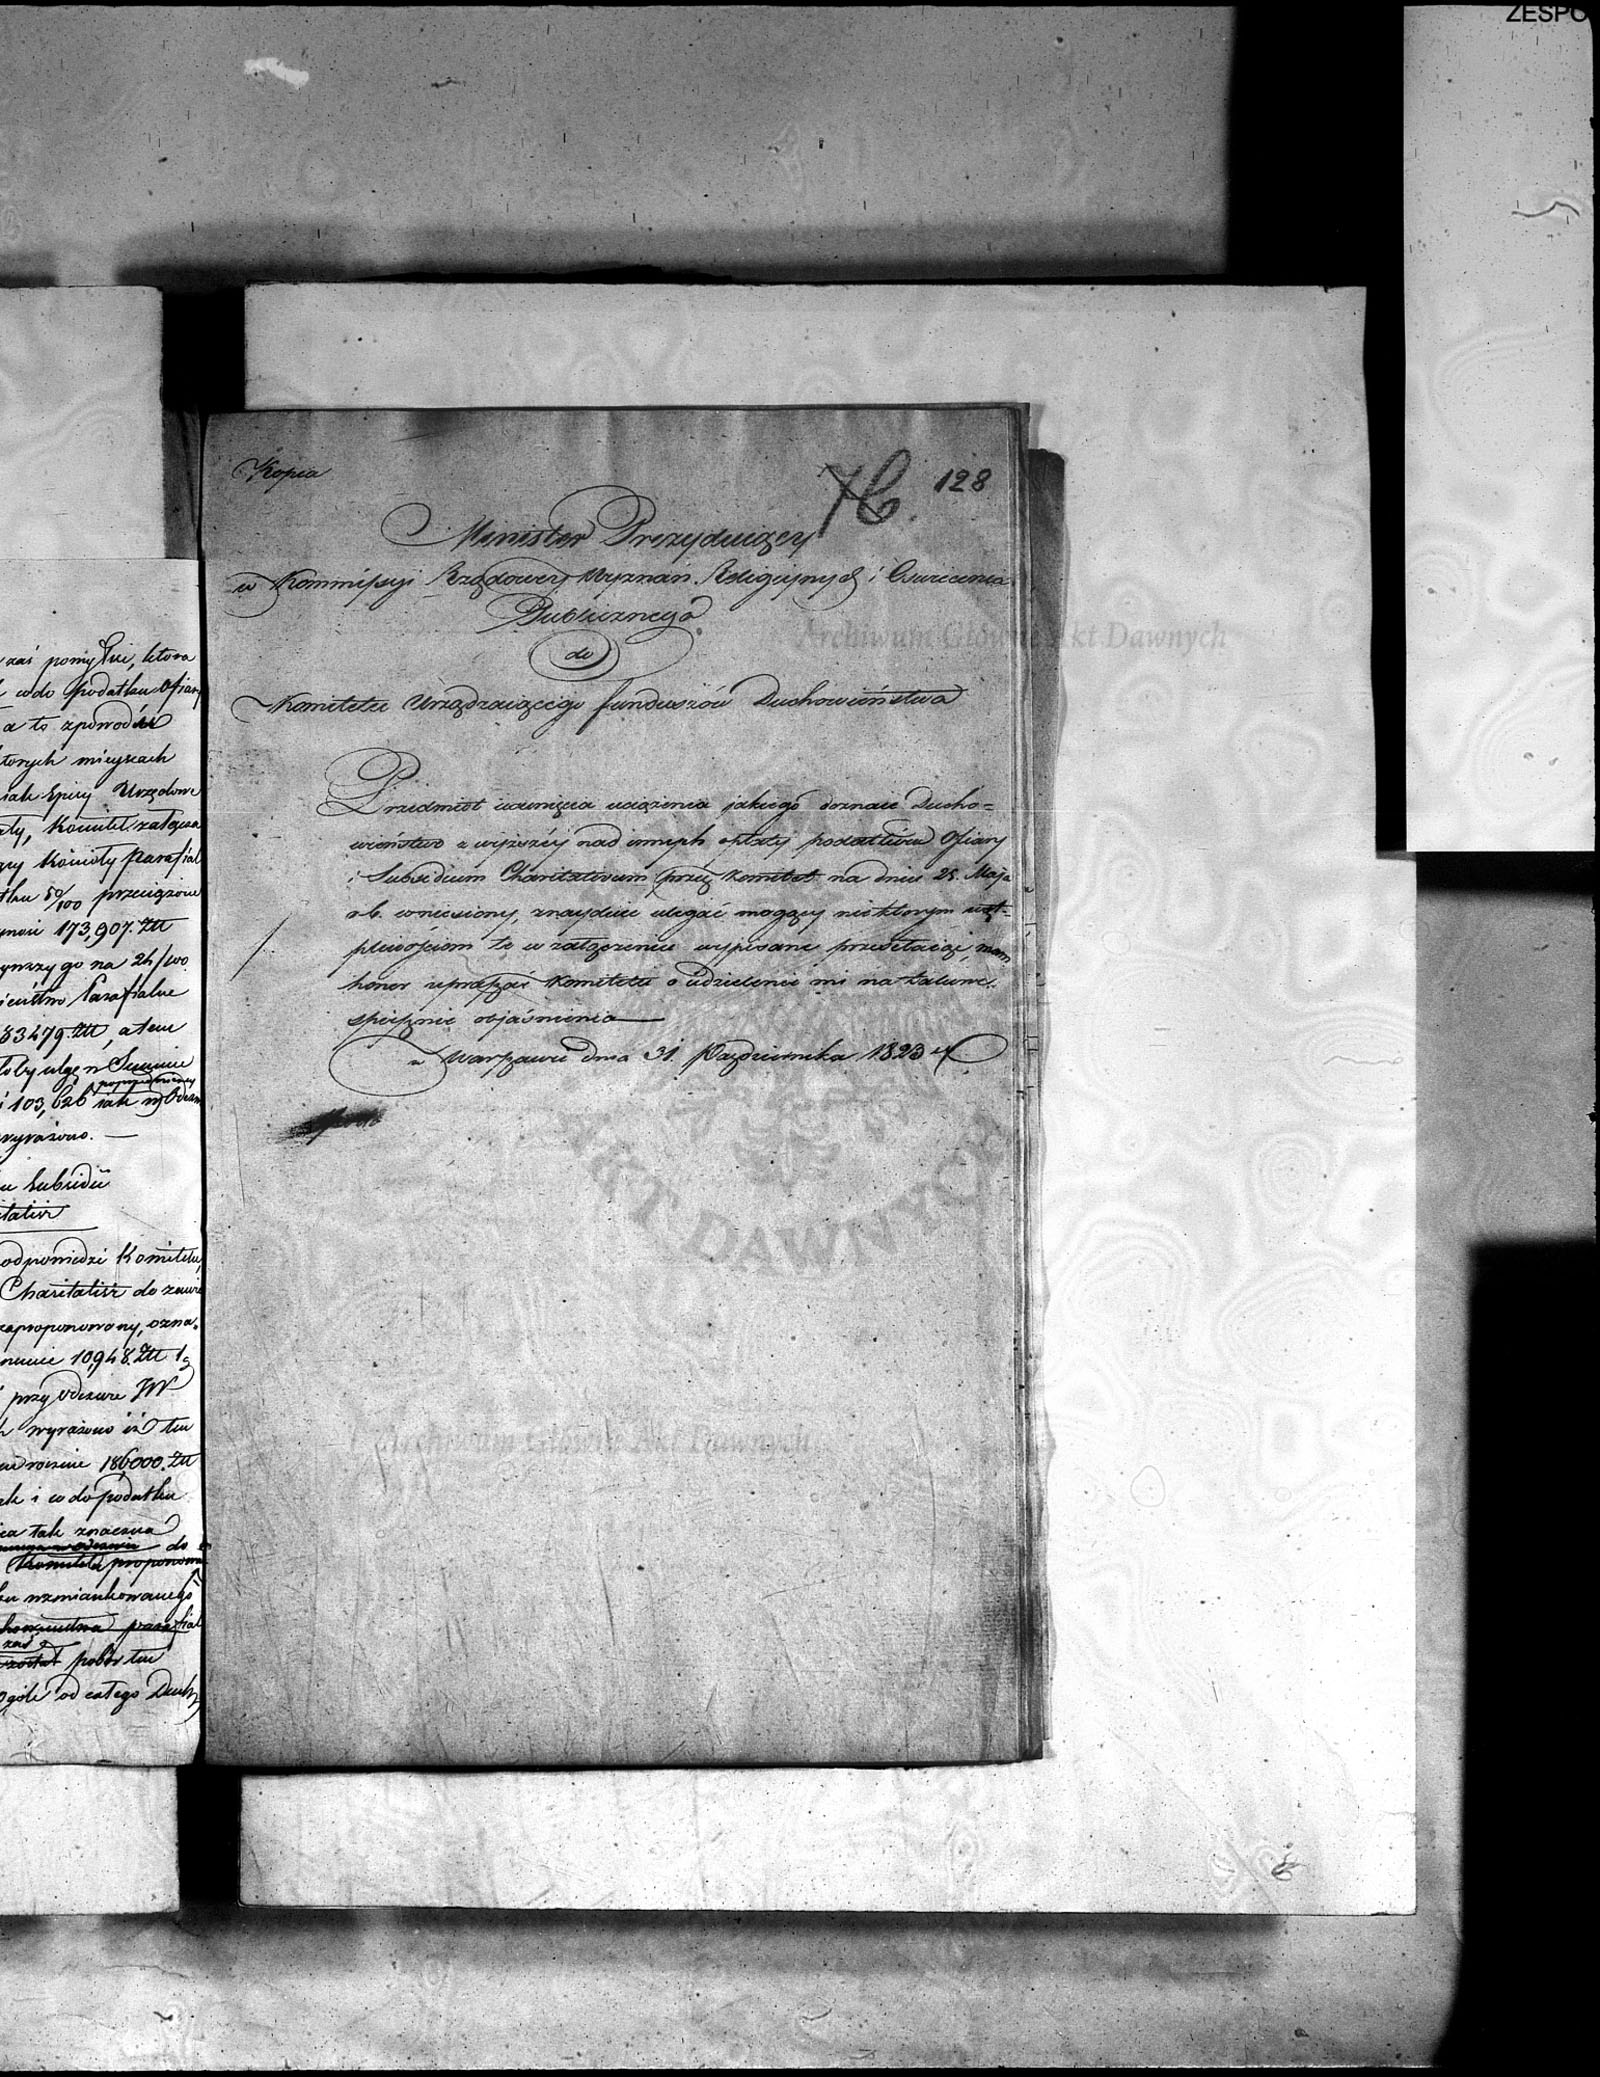 ZESPO
Kopia
76. 128
Minister Prezyduiący
w Kommissyi Rządowey Wyznań Religiynych i Oświecenia
Publicznego
do
Komitetu Urządzaiącego funduszów Duchowieństwa
Przedmiot usunięcia uciążenia jakiego doznaie Ducho=
wieństwo z wyższéy nad innych opłaty podatków Ofiary
i Subsidium Charitativum przez Komitet na dniu 25. Maja
r.b. wniesiony, znayduie ulegać mogący niektórym wąt-
pliwościom te w załączeniu wypisane przesełaiąc, mam
honor upraszać Komitetu o udzielenie mi na takowe
śpieszne objaśnienia
w Warszawie dnia 31. Października 1823 r.
Archiwum Główne Akt Dawnych
AKT DAWNYCH
Archiwum Główne Akt Dawnych
zaś pomyłki, która
co do podatku Ofiary
a to z powodu
których mieyscach
iak Spisy Urzędowe
Komitet załącza
Kościoły Parafial
50/100 przeciążone
173,907. Zł
na 24/100.
Parafialne
83479. Zł, a tem
ulgę w Summie
poprzedniczey
i 103,626 iak w Odezw
wyrażono. —
Subsidii
odpowiedzi Komitetu,
Charitativi do
zaproponowany, ozna-
10,948. Zł 1 g
przy Odezwie JW
wyrażono iż ten
rocznie 186000. Zł
i co do podatku
tak znaczna
do
Komitetu proponowa
wzmiankowanego
parafial
zaś
został pobór ten
ogóle od całego Duch